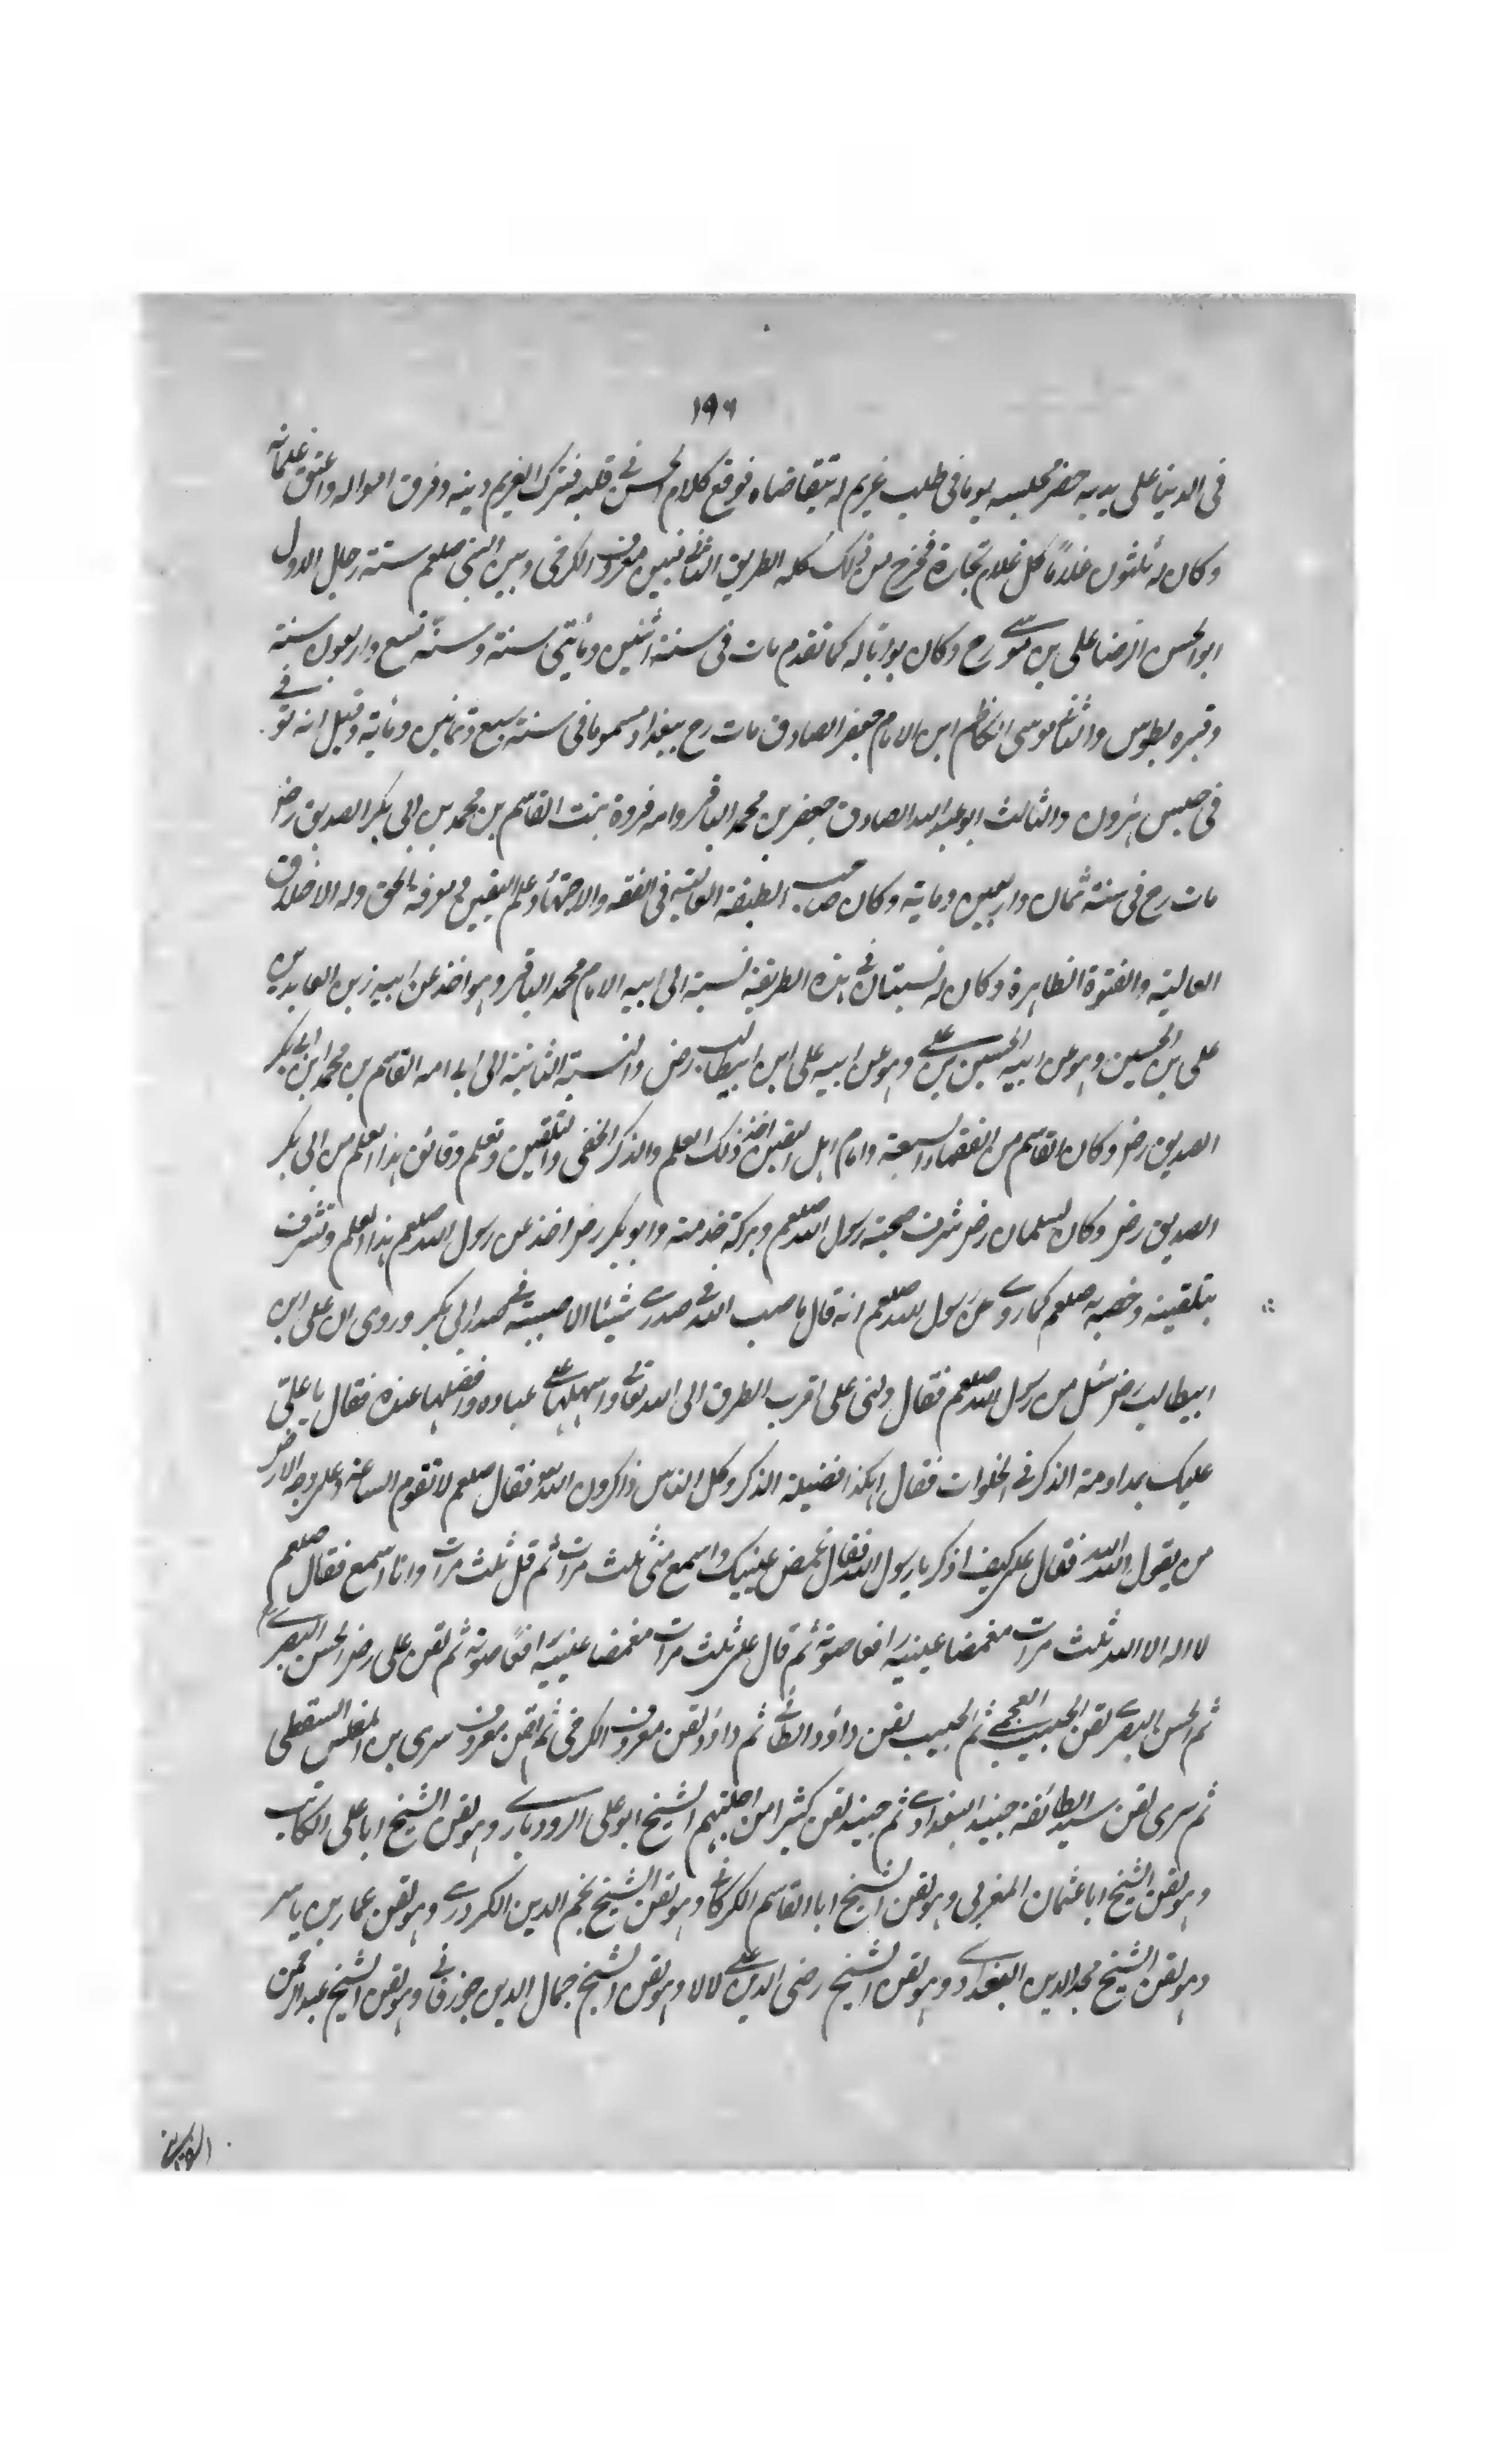 ١٩٦
فى الدنيا على يديه حضر مجلسه يوما فى طلب غريم له يتقاضاه فوقع كلام الحسن فى قلبه فترك الغريم دينه وفرق امواله واعتق غلمانه
وكان له ثلثون غلاما كل غلام تجارة فخرج من ذلك كله الطريق الثانى فبين معروف الكرخى وبين النبى صلعم ستة رجال الاول
ابو الحسن الرضا على بن موسى رح وكان بوابا له كما تقدم مات فى سنة اثنين ومائتى سنة وسنه تسع واربعون سنة
وقبره بطوس والثانى موسى الكاظم ابن الامام جعفر الصادق مات رح ببغداد مسموما فى سنة سبع وثمانين ومائة وقيل انه توفى
فى حبس هرون والثالث ابو عبد الله الصادق جعفر بن محمد الباقر وامه فروة بنت القاسم بن محمد بن ابى بكر الصديق رض
مات رح فى سنة ثمان واربعين ومائة وكان صاحب الطبقة العالية فى الفقه والاجتهاد وعلم اليقين فى معرفة بالحق وله الاخلاق
العالية والفتوة الظاهرة وكان له نسبتان فى هذه الطريقة نسبة الى ابيه الامام محمد الباقر وهو اخذ عن ابيه زين العابدين
على بن الحسين وهو عن ابيه الحسين بن على وهو عن ابيه على ابن ابيطالب رض والنسبة الثانية الى اب امه القاسم بن محمد ابن ابى بكر
الصديق رض وكان القاسم من الفقهاء السبعة وامام اهل اليقين اخذ ذلك العلم والذكر الخفى والتلقين وتعلم دقائق هذا العلم من ابى بكر
الصديق رض وكان لسلمان رض شرف صحبة رسول الله صلعم وبركة خدمته وابو بكر رض اخذ عن رسول الله صلعم هذا العلم وتشرف
بتلقينه وخص به صلعم كما روى عن رسول الله صلعم انه قال ما صب الله فى صدرى شيئا الا صببته فى صدر ابى بكر وروى ان على ابن
ابيطالب رض سئل من رسول الله صلعم فقال دلنى على اقرب الطرق الى الله تعالى واسهلها على عباده وافضلها عنده فقال يا على
عليك بمداومة الذكر فى الخلوات فقال اهكذا فضيلة الذكر وكل الناس ذاكرون الله فقال صلعم لا تقوم الساعة وعلى وجه الارض
من يقول الله الله فقال على كيف اذكر يا رسول الله فقال غمض عينيك واسمع منى ثلث مرات ثم قل ثلث مرات وانا اسمع فقال صلعم
لا اله الا الله ثلث مرات مغمضا عينيه رافعا صوته ثم قال على ثلث مرات مغمضا عينيه رافعا صوته ثم لقن على رض الحسن البصرى
ثم الحسن البصرى لقن الحبيب العجمى ثم الحبيب لقن داؤد الطائى ثم داؤد لقن معروف الكرخى ثم لقن معروف سرى بن المغلس السقطى
ثم سرى لقن سيد الطائفة جنيد البغدادى ثم جنيد لقن كثيرا من اجلتهم الشيخ ابو على الرودبارى وهو لقن الشيخ ابا على الكاتب
وهو لقن الشيخ ابا عثمان المغربى وهو لقن الشيخ ابا القاسم الكركانى وهو لقن الشيخ نجم الدين الكردرى وهو لقن عمار بن ياسر
وهو لقن الشيخ مجد الدين البغدادى وهو لقن الشيخ رضى الدين على لالا وهو لقن الشيخ جمال الدين جوزقانى وهو لقن الشيخ عبد الرحمن